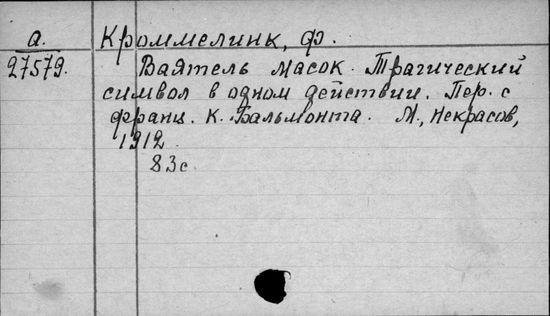 а. Кроммелинк, Ф.
27579. Ваятель масок. Трагический
символ в одном действии. Пер. с
франц. К. Бальмонта. М., Некрасов,
1912.
83с.